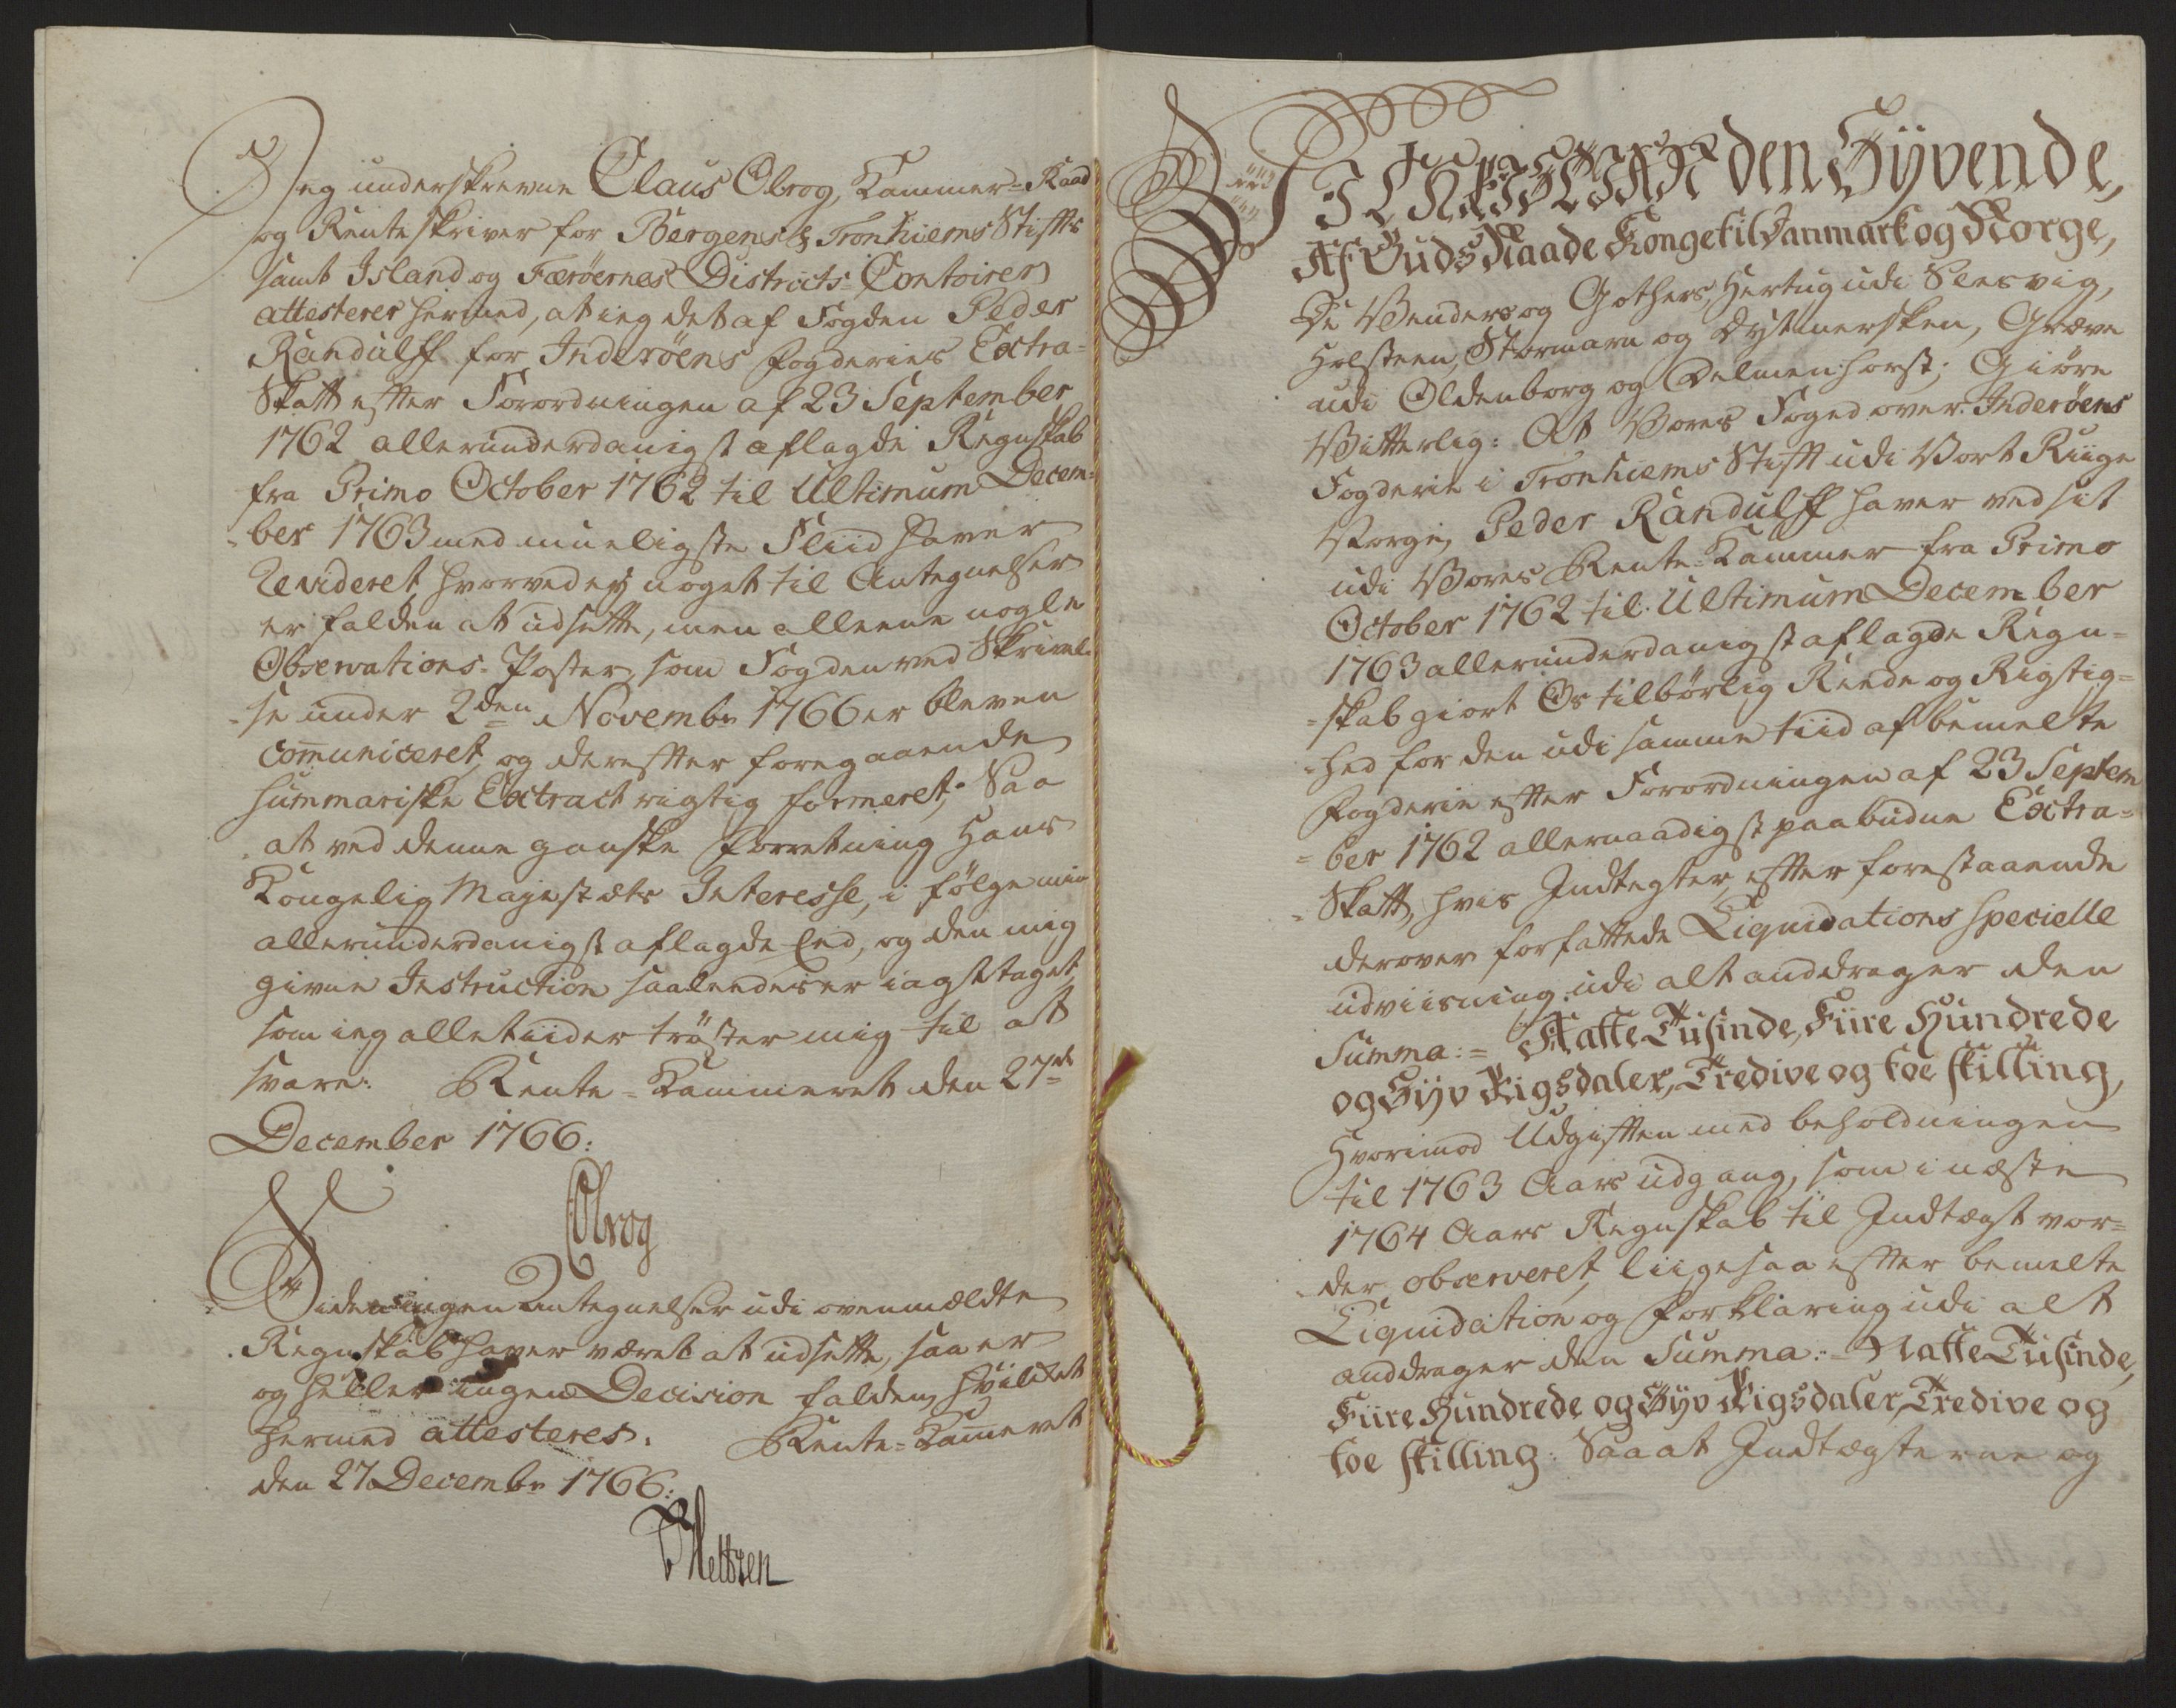 Jeg underskrevne Claus Olrog, Kammer-Raad
og Renteskriver for Bergens & Tronhiems Stiffts
samt Island og Færøernes Districts-Contoirer
attesterer hermed, at jeg det af Fogden Peder
Randulff for Inderöens Fogderies Extra-
Skatt efter Forordningen af 23 September
1762 allerunderdanigst aflagde Regnskab
fra Primo October 1762 til Ultimum Decem-
ber 1763 med mueligste Fliid haver
Revideret, hvorved ey noget til Antegnelser
er falden at udsette, men alleene nogle
Observations-Poster, som Fogden ved Skrivel-
se under 2den Novembr 1766 er bleven
communiceret, og derefter foregaaende
summariske Extract rigtig formeret; Saa
at ved denne ganske Forretning Hans
Kongelig Majestæts Interesse, i følge min
allerunderdanigst aflagde Eed, og den mig
givne Instruction saaledes er iagttaget,
som jeg alletiider tröster mig til at
svare. Rente-Kammeret den 27de
December 1766:
COlrog
Siden ingen Antegnelser udi ovenmældte
Regnskab haver været at udsette, saa er
og heller ingen Decision falden, hvilket
hermed attesteres. Rente-Kammeret
den 27 Decembr 1766:
Meltzen
VI CHRISTIAN den Syvende,
Af Guds Naade Konge til Danmark og Norge,
De Venders og Gothers, Hertug udi Slesvig,
Holsteen, Stormarn og Dytmersken, Greve
udi Oldenborg og Delmenhorst; Giøre
Vitterlig: At Vores Foged over Inderöens
Fogderie i Tronhiems Stifft udi Vort Riige
Norge, Peder Randulff haver ved sit
udi Vores Rente-Kammer fra Primo
October 1762 til Ultimum December
1763 allerunderdanigst aflagde Regn-
skab giort Os tilbörlig Reede og Rigtig-
hed for den udi samme tiid af bemelte
Fogderie efter Forordningen af 23 Septem
ber 1762 allernaadigst paabudne Extra-
Skatt, hvis Indtegter, efter forestaaende
derover forfattede Liquidations specielle
udviisning, udi alt anddrager den
Summa:= Aatte Tusinde, Fiire Hundrede
og Syv Rigsdaler, Tredive og toe skilling,
Hvorimod Udgifften med beholdningen
til 1763 Aars udgang, som i næste
1764 Aars Regnskab til Indtægt vor-
der observeret, liigesaa efter bemelte
Liquidation og Forklaring udi alt
anddrager den Summa:= Aatte Tusinde,
Fiire Hundrede og Syv Rigsdaler, Tredive og
toe skilling: Saa at Indtægterne og